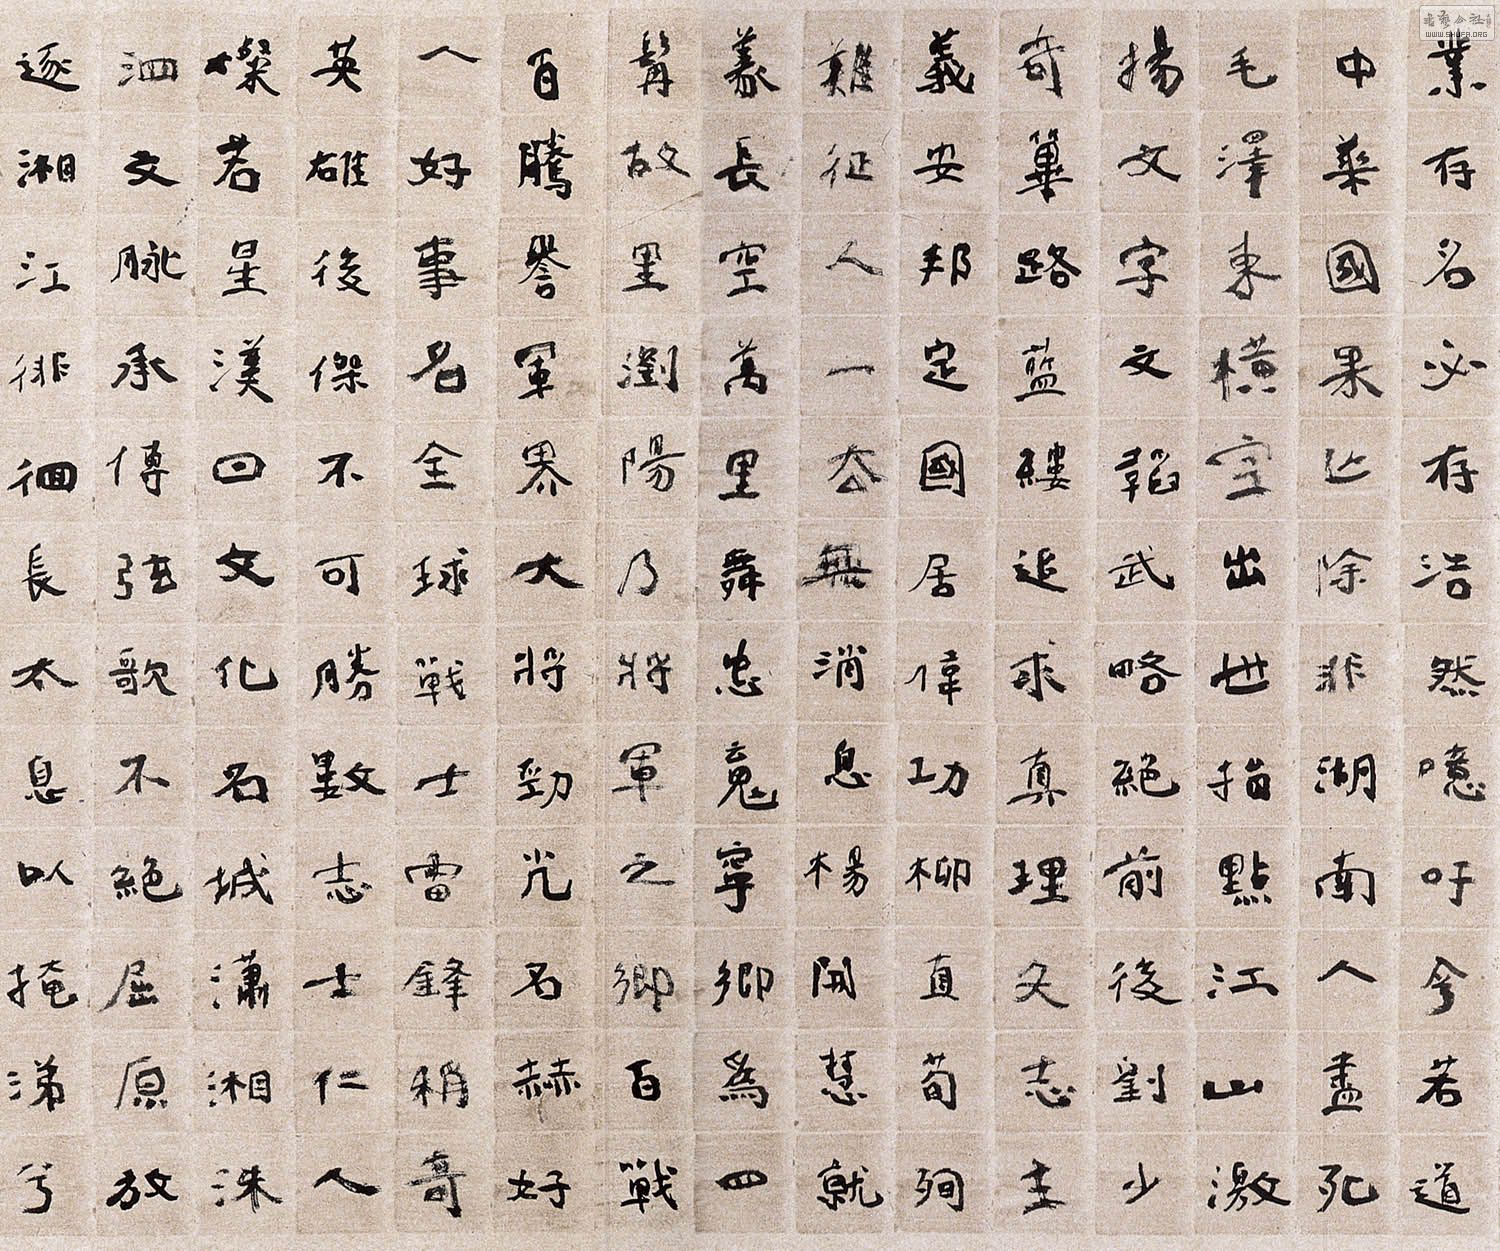 業存名必存浩然噫吁今若道
中華國果亡除非湖南人盡死
毛澤東橫空出世指點江山激
揚文字文韜武略絕前後劉少
奇篳路藍縷追求真理文志主
義安邦定國居偉功柳直荀殉
難征人一去無消息楊開慧就
義長空萬里舞忠魂寧鄉為四
髯故里瀏陽乃將軍之鄉百戰
百騰譽軍界大將勁光名赫好
人好事名全球戰士雷鋒稱奇
英雄後傑不可勝數志士仁人
燦若星漢曰文化名城瀟湘洙
泗文脉承傳弦歌不絕屈原放
逐湘江徘徊長太息以掩涕兮
书艺公社
WWW.SHUFA.ORG